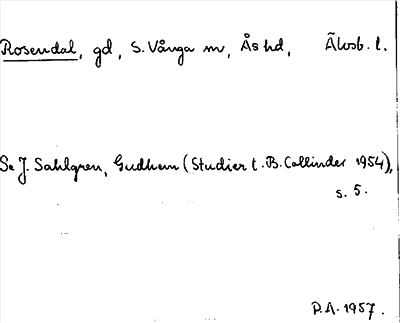 Rosendal, gd, S. Vånga sn, Ås hd, Älvsb. l.
Se J. Sahlgren, Gudhem (Studier t. B. Collinder 1954),
s. 5.
P.A. 1957.